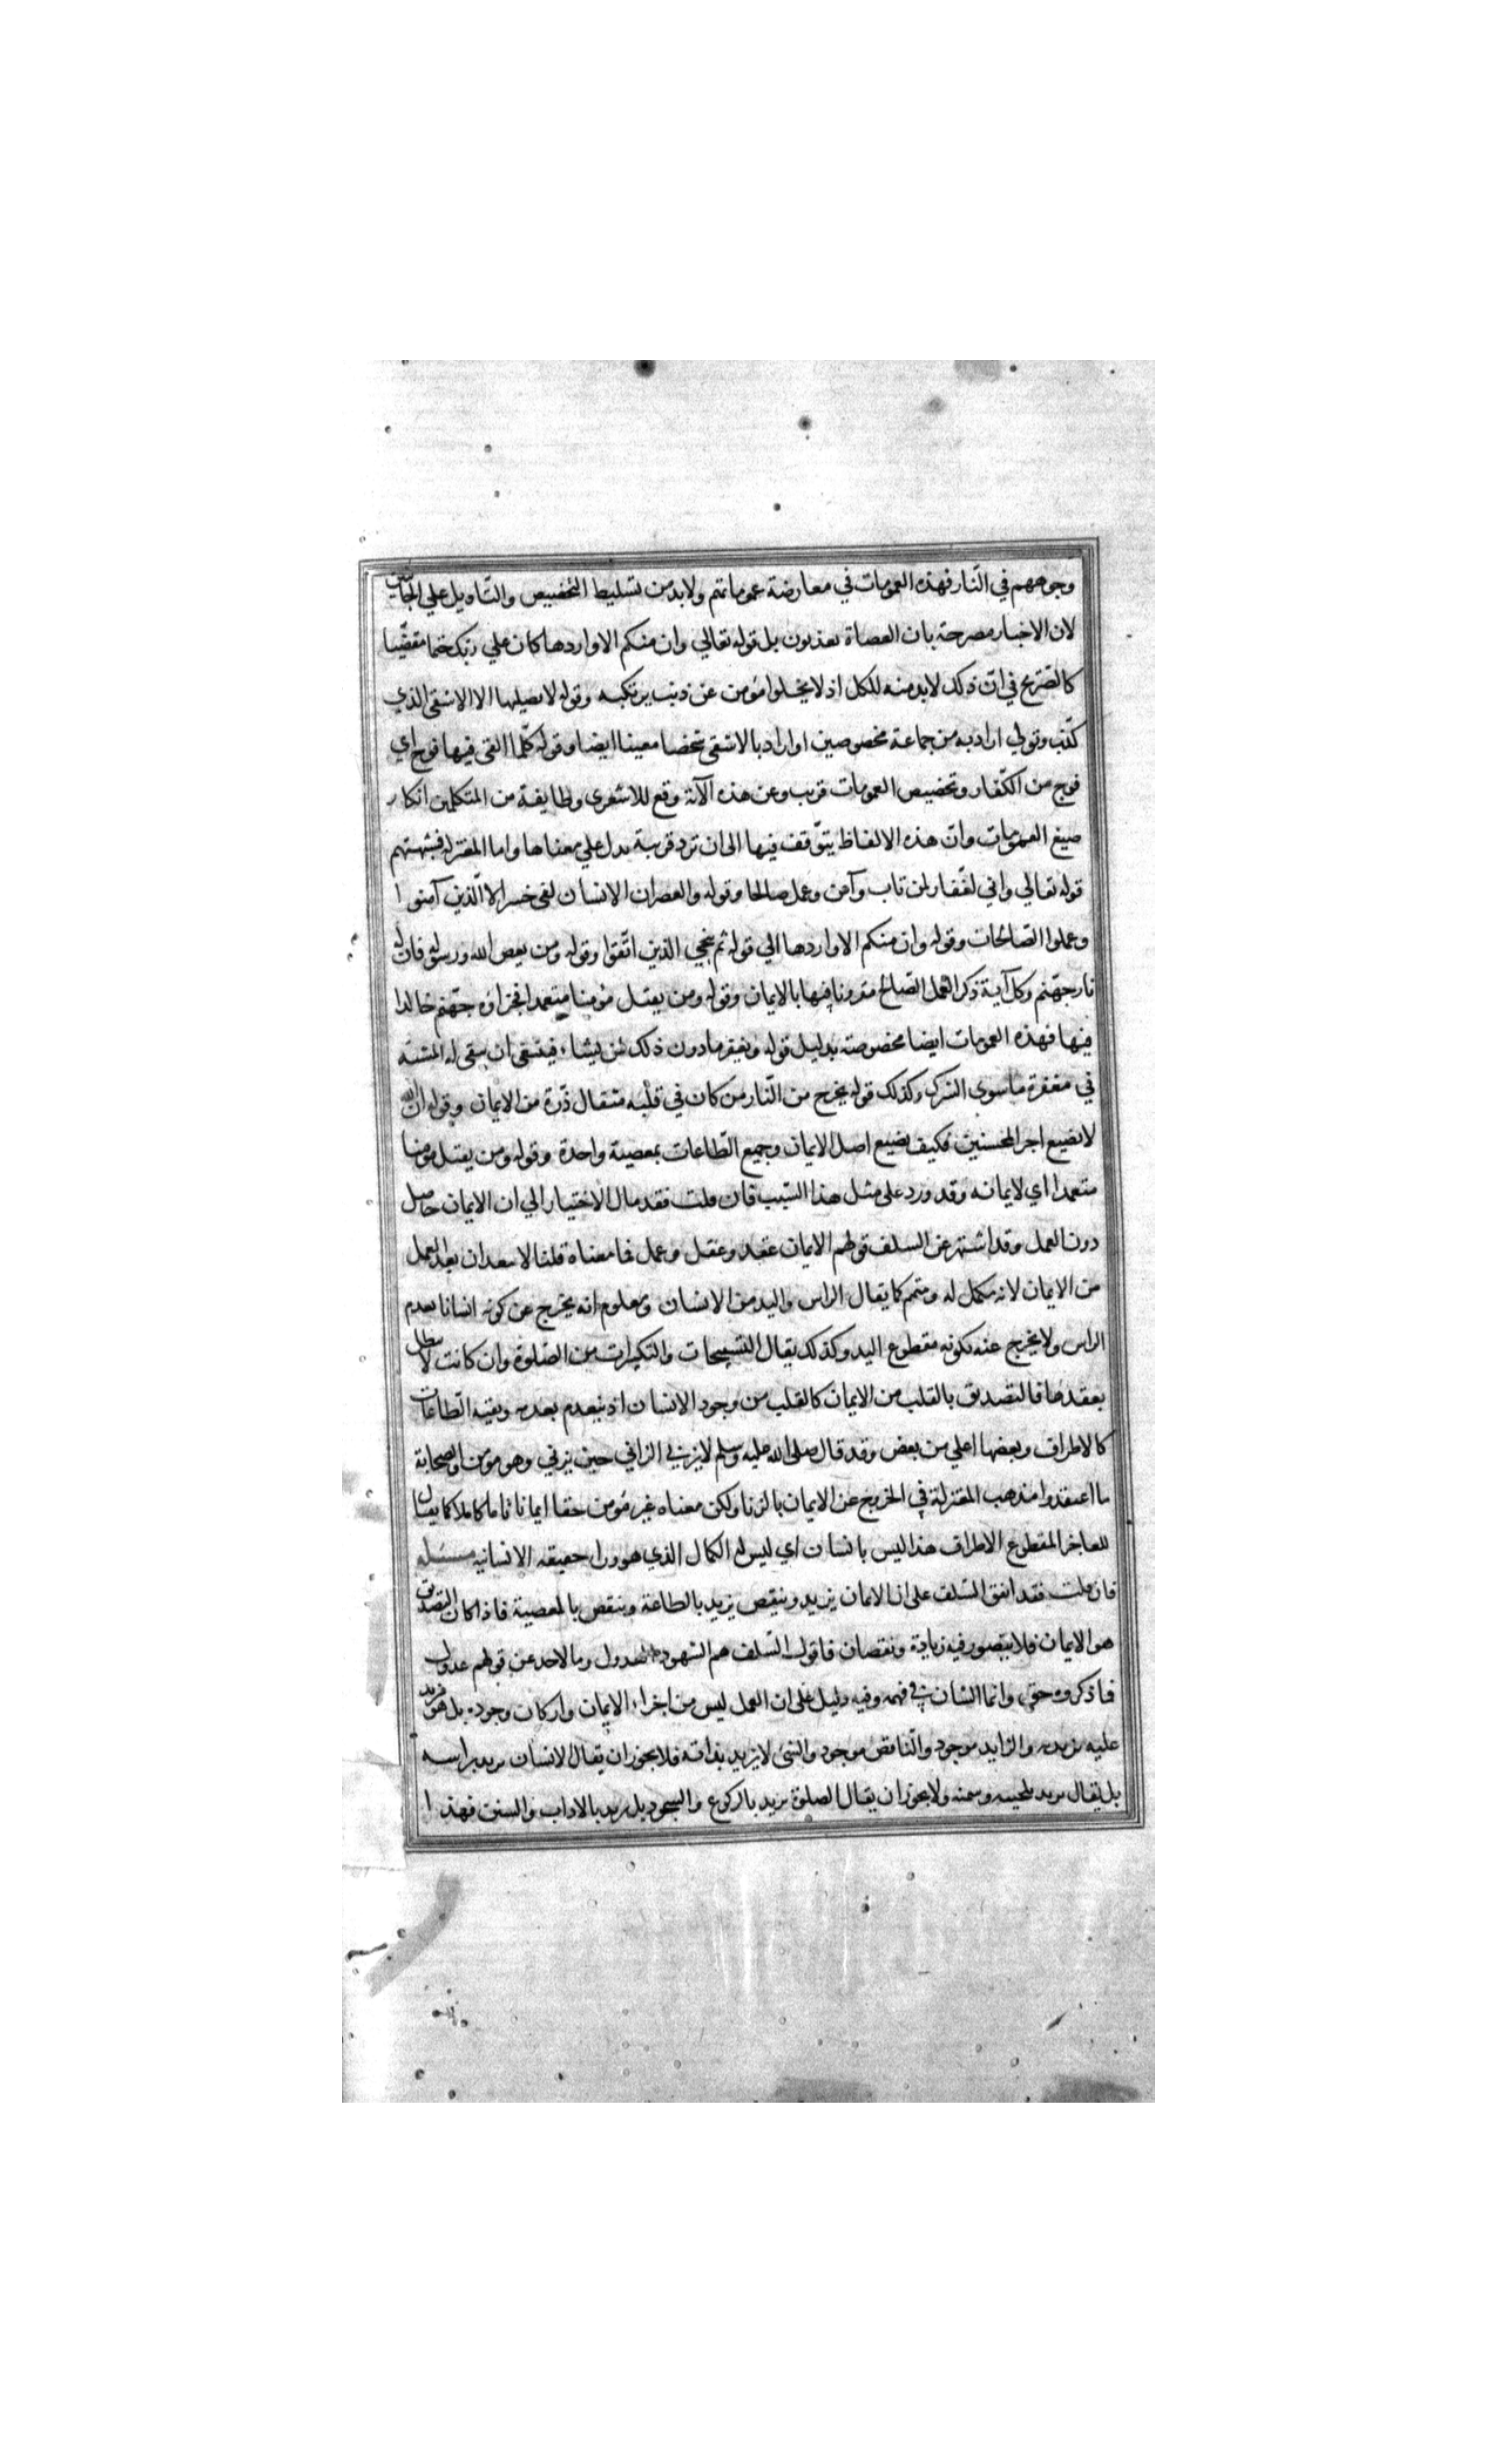 وجوههم في النّار فهذه العمومات في معارضة عموماتهم ولابد من تسليط التخصيص والتّاويل علي الجانبين
لان الاخبار مصرحة بان العصاة يعذبون بل قوله تعالي وان منكم الا واردها كان علي ربك حتما مقضّيا
كالصّريح في انّ ذلك لابد منه للكل اذ لا يخلوا مؤمن عن ذنب يرتكبه وقوله لا يصليها الا الاشقي الذي
كذّب وتولي اراد به من جماعة مخصوصين او اراد بالاشقي شخصا معينا ايضا وقوله كلّما القي فيها فوج اي
فوج من الكفّار وتخصيص العمومات قريب وعن هذه الآية وقع للاشعري وطايفة من المتكلمين انكار
صيغ العمومات وانّ هذه الالفاظ يتوّقف فيها الى ان ترد قرينة تدل علي معناها واما المعتزلة فشبهتهم
قوله تعالي واني لغفّار لمن تاب وآمن وعمل صالحا وقوله والعصر ان الانسان لفي خسر الا الّذين آمنوا
وعملوا الصّالحات وقوله وان منكم الا واردها الي قوله ثم ننجي الذين اتّقوا وقوله ومن يعص الله ورسوله فان له
نار جهّنم وكل آية ذكر العمل الصّالح مقرونا فيها بالايمان وقوله ومن يقتل مؤمنا متعمدا فجزاؤه جهّنم خالدا
فيها فهذه العمومات ايضا مخصوصة بدليل قوله ويغفر ما دون ذلك لمن يشاء فينبغي ان يبقي له المشيّة
في مغفرة ما سوي الشرك وكذلك قوله يخرج من النّار من كان في قلبه مثقال ذّرة من الايمان وقوله ان الله
لا يضيع اجر المحسنين فكيف يضيع اصل الايمان وجميع الطّاعات بمعصية واحدة وقوله ومن يقتل مؤمنا
متعمدا اي لايمانه وقد ورد على مثل هذا السّبب فان قلت فقد مال الاختيار الي ان الايمان حاصل
دون العمل وقد اشتهر عن السلف قولهم الايمان عقد وعقل وعمل فما معناه قلنا لا يبعد ان يعد العمل
من الايمان لانه مكمل له ومتمم كما يقال الراس واليد من الانسان ومعلوم انه يخرج عن كونه انسانا بعدم
الراس ولا يخرج عنه بكونه مقطوع اليد وكذلك يقال التسبيحات والتكبيرات من الصّلوة وان كانت لا تبطل
بفقدها فالتصديق بالقلب من الايمان كالقلب من وجود الانسان اذ ينعدم بعدمه وبقية الطّاعات
كالاطراف وبعضها اعلي من بعض وقد قال صلى الله عليه وسلم لا يزني الزاني حين يزني وهو مؤمن والصحابة
ما اعتقدوا مذهب المعتزلة في الخروج عن الايمان بالزنا ولكن معناه غير مؤمن حقا ايمانا تاما كاملا كما يقال
للعاجز المقطوع الاطراف هذا ليس بانسان اي ليس له الكمال الذي هو وراء حقيقه الانسانيه مسئله
فان قلت فقد اتفق السّلف على ان الايمان يزيد وينقص يزيد بالطاعة وينقص بالمعصية فاذا كان التصديق
هو الايمان فلا يتصور فيه زيادة ونقصان فاقول السّلف هم الشهود العدول وما لاحد عن قولهم عدول
فما ذكروه حق وانما الشان في فهمه وفيه دليل على ان العمل ليس من اجزاء الايمان واركان وجوده بل هو مزيد
عليه يزيد به والزايد موجود والنّاقص موجود والشئ لا يزيد بذاته فلا يجوز ان يقال الانسان يزيد براسه
بل يقال يزيد بلحيته وسمنه ولا يجوز ان يقال الصلوة تزيد بالركوع والسجود بل تزيد بالاداب والسنن فهذا